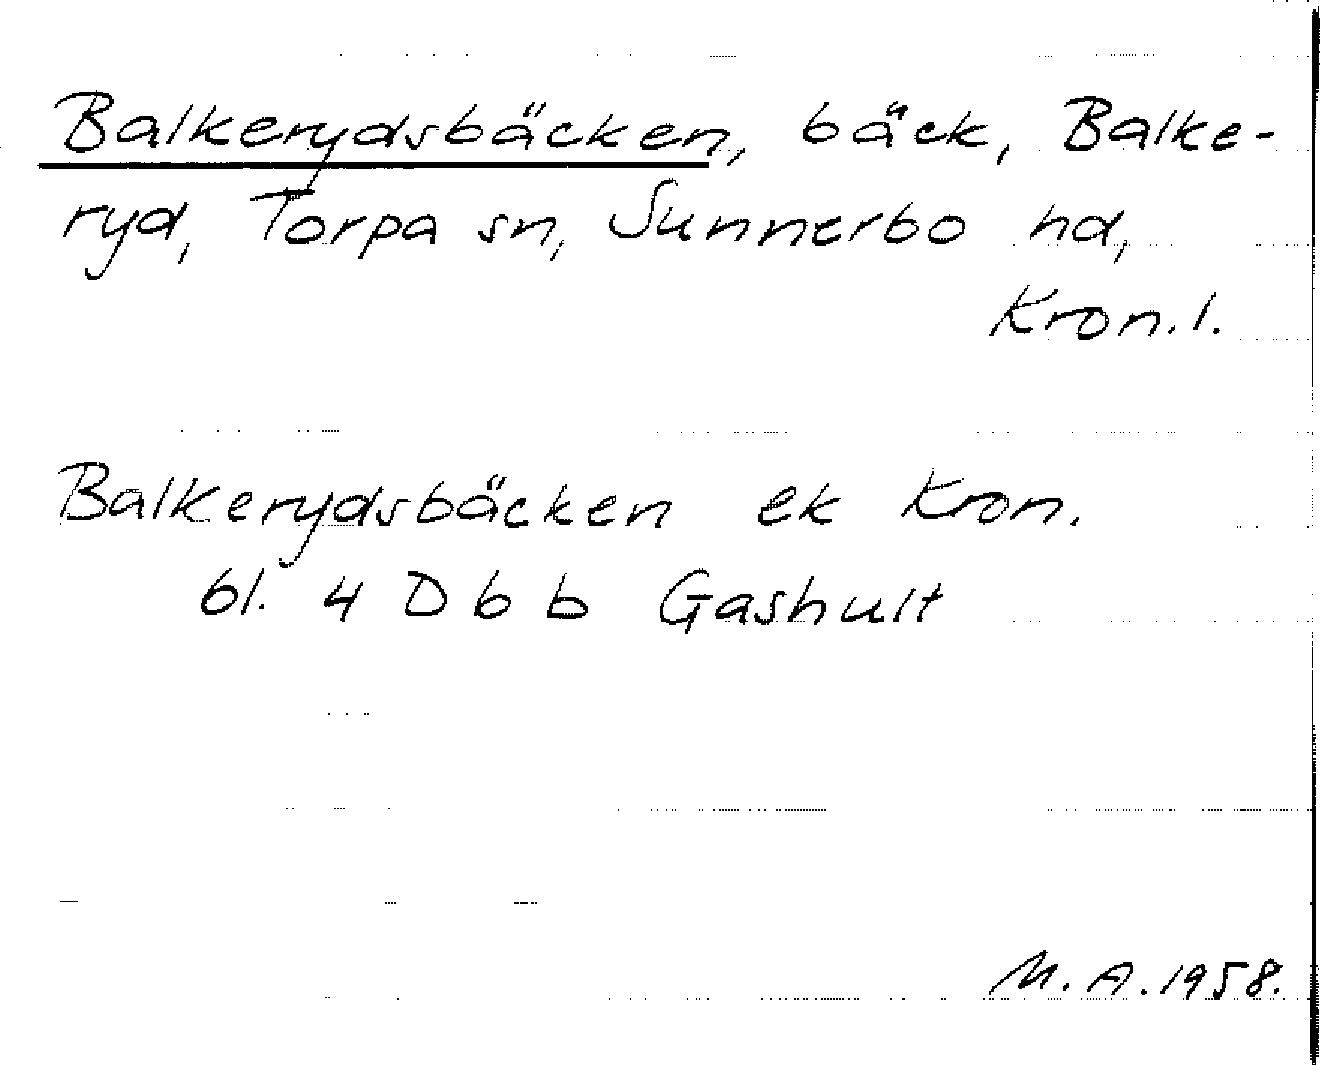 Balkerydsbäcken, bäck, Balke-
ryd, Torpa sn, Sunnerbo hd,
Kron. l.
Balkerydsbäcken ek Kron.
bl. 4 D b b Gashult
M. A. 1958.